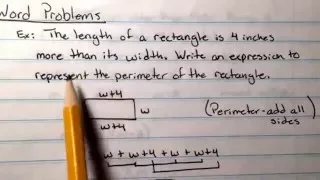 Word Problems
Ex: The length of a rectangle is 4 inches
more than its width. Write an expression to
represent the perimeter of the rectangle.
w+4
w
(Perimeter-add all
sides
w+4
w + w + w+4 + w + w+4